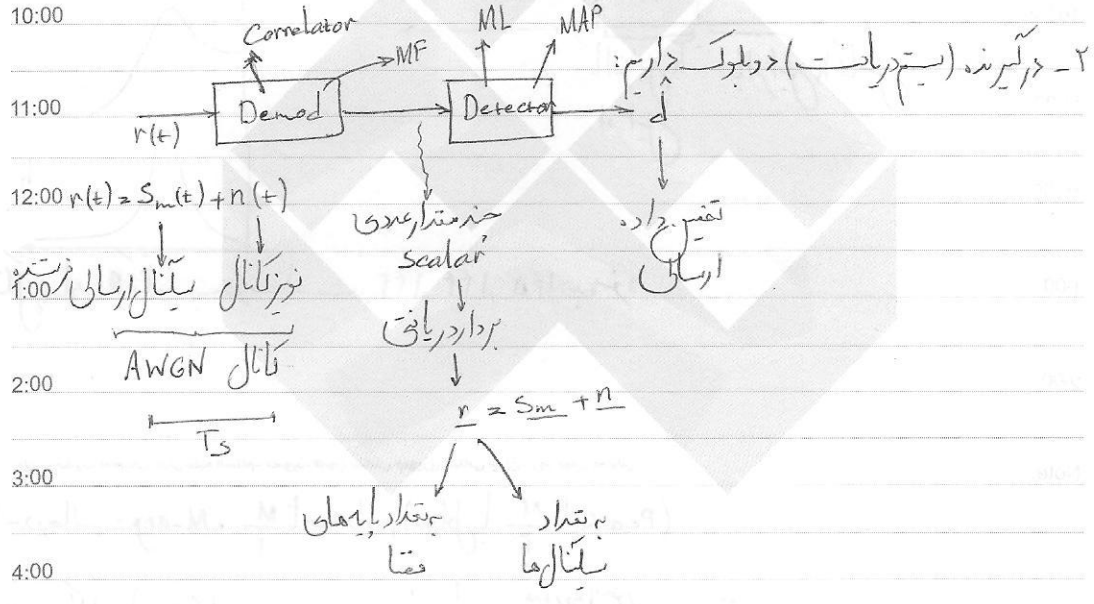 10:00
Correlator
MF
ML
MAP
۲- در گیرنده (سیستم دریافت) دو بلوک داریم:
11:00
r(t)
Demod
Detector
d̂
12:00
r(t) = Sm(t) + n(t)
چند مقدار عددی
Scalar
تخمین داده
ارسالی
1:00
نویز کانال
سیگنال ارسالی فرستنده
بردار دریافتی
کانال AWGN
2:00
r = Sm + n
Ts
3:00
به تعداد پایه های
فضا
به تعداد
سیگنال ها
4:00